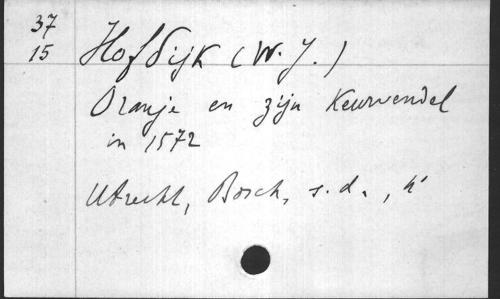 37
15
Hofdijk (W. J.)
Oranje en zijn Keurvendel
in 1572
Utrecht, Bosch, s. d.,